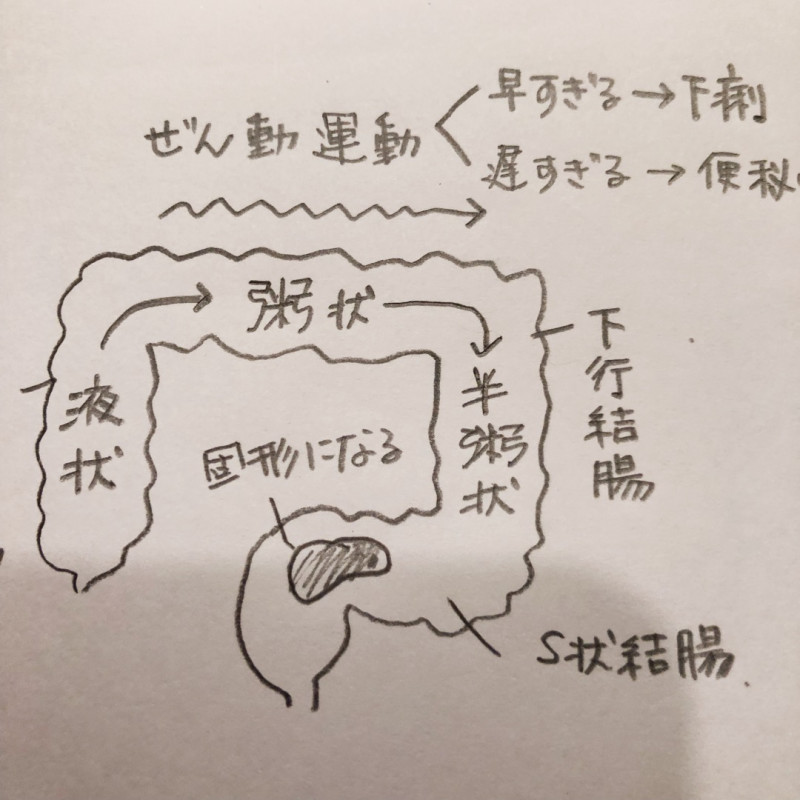 ぜん動運動
早すぎる→下痢
遅すぎる→便秘
粥状
液状
半粥状
下行結腸
固形になる
S状結腸